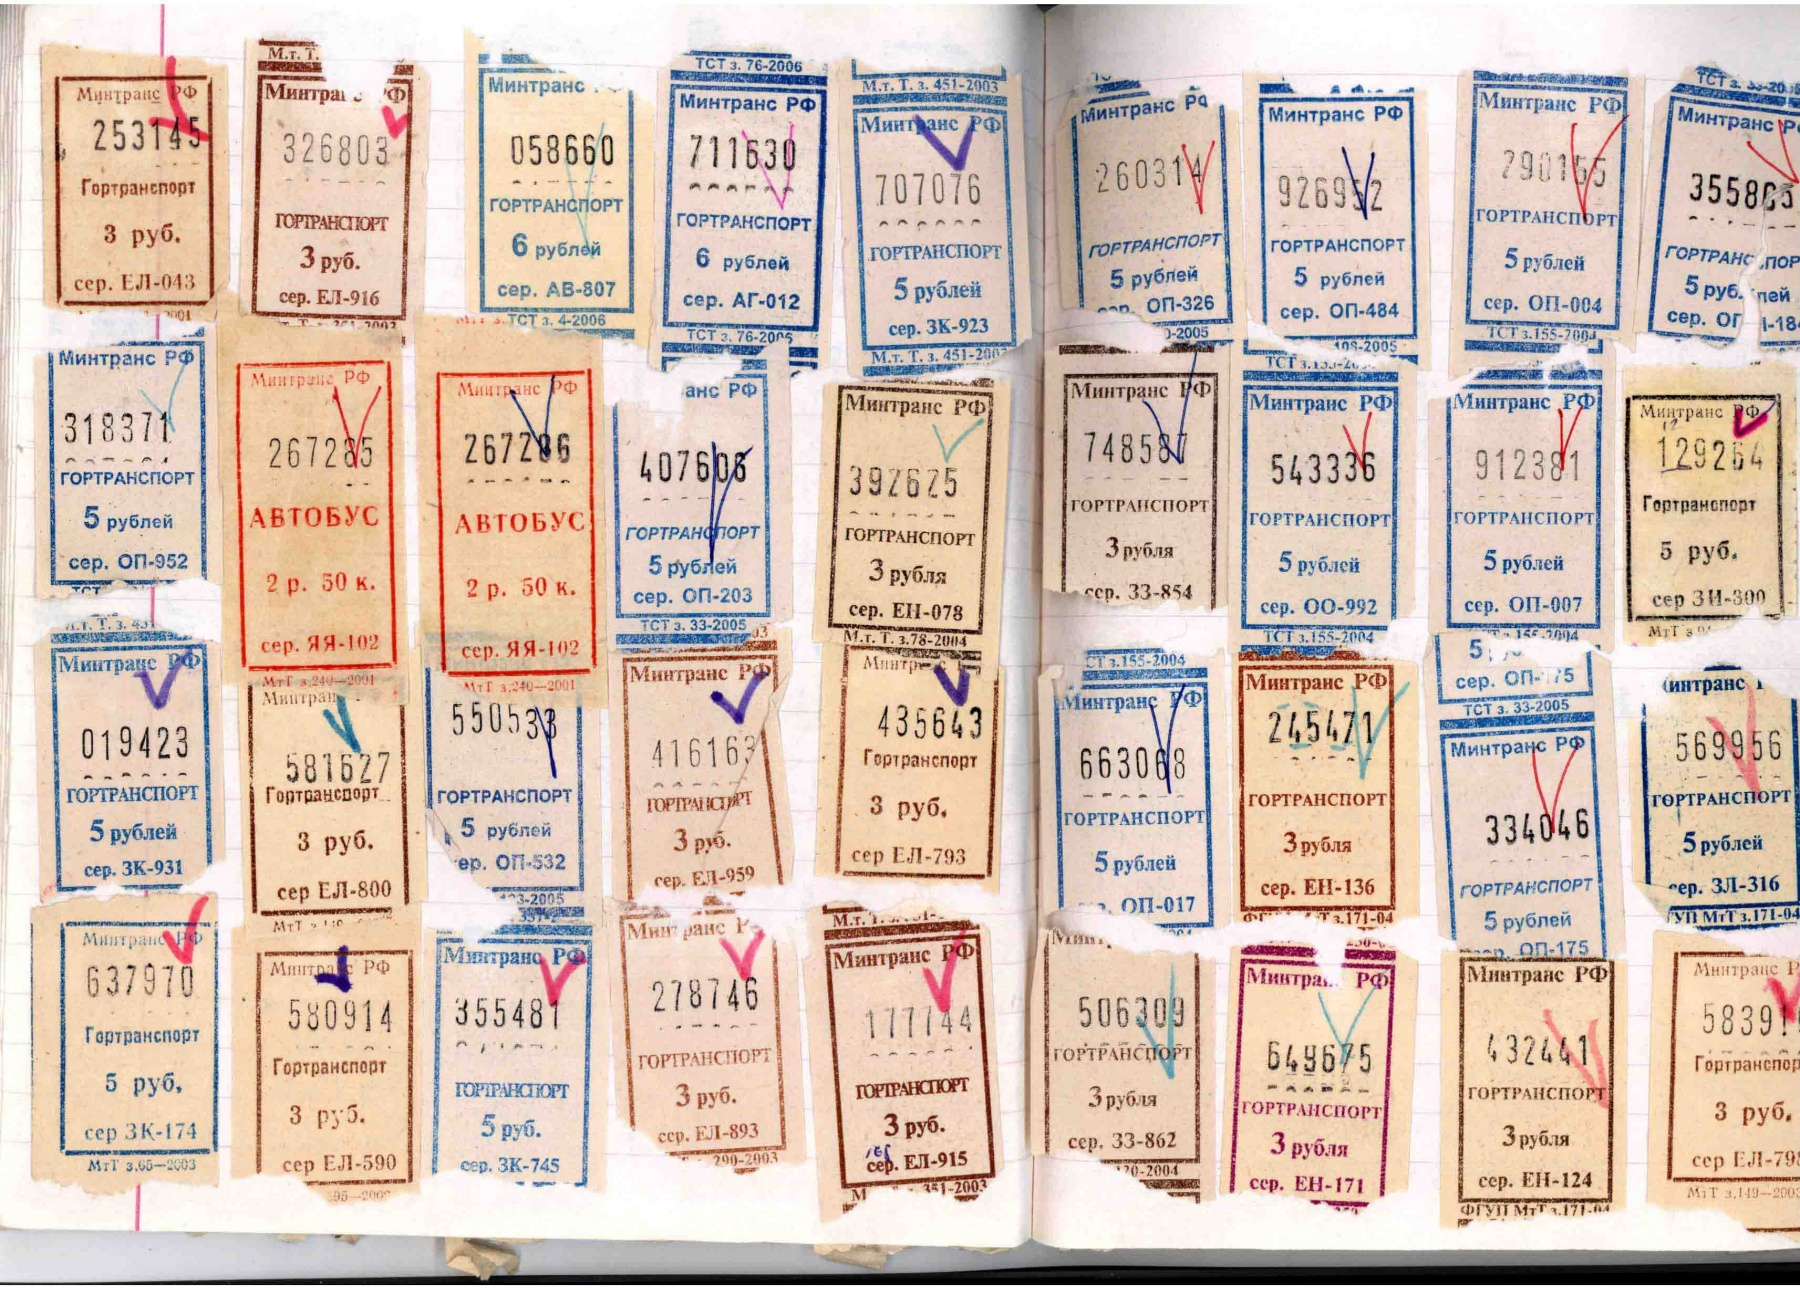 Минтранс РФ
253145
Гортранспорт
3 руб.
сер. ЕЛ-043
М.т. Т.
326803
ГОРТРАНСПОРТ
3 руб.
сер. ЕЛ-916
Минтранс
058660
ГОРТРАНСПОРТ
6 рублей
сер. АВ-807
ТСТ з. 4-2006
ТСТ з. 76-2006
Минтранс РФ
711630
ГОРТРАНСПОРТ
6 рублей
сер. АГ-012
ТСТ з. 76-2006
М.т. Т. з. 451-2003
Минтранс РФ
707076
ГОРТРАНСПОРТ
5 рублей
сер. ЗК-923
М.т. Т. з. 451-2003
Минтранс РФ
260314
ГОРТРАНСПОРТ
5 рублей
сер. ОП-326
Минтранс РФ
926952
ГОРТРАНСПОРТ
5 рублей
сер. ОП-484
108-2005
Минтранс РФ
290155
ГОРТРАНСПОРТ
5 рублей
сер. ОП-004
ТСТ з.155-2004
Минтранс
ГОРТРАНСПОР
5 рублей
Минтранс РФ
318371
ГОРТРАНСПОРТ
5 рублей
сер. ОП-952
Минтранс РФ
267285
АВТОБУС
2 р. 50 к.
сер. ЯЯ-102
МтТ з.240—2001
Минтранс РФ
267286
АВТОБУС
2 р. 50 к.
сер. ЯЯ-102
МтТ з.240—2001
анс РФ
407606
ГОРТРАНСПОРТ
5 рублей
сер. ОП-203
ТСТ з. 33-2005
Минтранс РФ
392625
ГОРТРАНСПОРТ
3 рубля
сер. ЕН-078
М.т. Т. з.78-2004
Минтранс РФ
748587
ГОРТРАНСПОРТ
3 рубля
сер. ЗЗ-854
Минтранс РФ
543336
ГОРТРАНСПОРТ
5 рублей
сер. ОО-992
ТСТ з.155-2004
Минтранс РФ
912381
ГОРТРАНСПОРТ
5 рублей
сер. ОП-007
155-2004
Минтранс РФ
129264
Гортранспорт
5 руб.
сер ЗИ-300
Минтранс РФ
019423
ГОРТРАНСПОРТ
5 рублей
сер. ЗК-931
Минтран
581627
Гортранспорт
3 руб.
сер ЕЛ-800
550533
ГОРТРАНСПОРТ
5 рублей
ер. ОП-532
Минтранс РФ
416163
ГОРТРАНСПОРТ
3 руб.
сер. ЕЛ-959
435643
Гортранспорт
3 руб.
сер ЕЛ-793
СТ з.155-2004
Минтранс РФ
663068
ГОРТРАНСПОРТ
5 рублей
ОП-017
Минтранс РФ
245471
ГОРТРАНСПОРТ
3 рубля
сер. ЕН-136
ФГУП МтТ з.171-04
сер. ОП-175
ТСТ з. 33-2005
Минтранс РФ
334046
ГОРТРАНСПОРТ
5 рублей
ОП-175
569956
ГОРТРАНСПОРТ
5 рублей
сер. ЗЛ-316
ГУП МтТ з.171-04
Минтранс РФ
637970
Гортранспорт
5 руб.
сер ЗК-174
МтТ з.65—2003
Минтранс РФ
580914
Гортранспорт
3 руб.
сер ЕЛ-590
Минтранс РФ
355481
ГОРТРАНСПОРТ
5 руб.
сер. ЗК-745
278746
ГОРТРАНСПОРТ
3 руб.
сер. ЕЛ-893
290-2003
Минтранс РФ
177744
ГОРТРАНСПОРТ
3 руб.
сер. ЕЛ-915
351-2003
506309
ГОРТРАНСПОРТ
3 рубля
сер. ЗЗ-862
Минтранс РФ
649675
ГОРТРАНСПОРТ
3 рубля
сер. ЕН-171
Минтранс РФ
432441
ГОРТРАНСПОРТ
3 рубля
сер. ЕН-124
ФГУП МтТ з.171-04
Минтранс Р
5839
Гортранспор
3 руб.
сер ЕЛ-798
МтТ з.149—2003